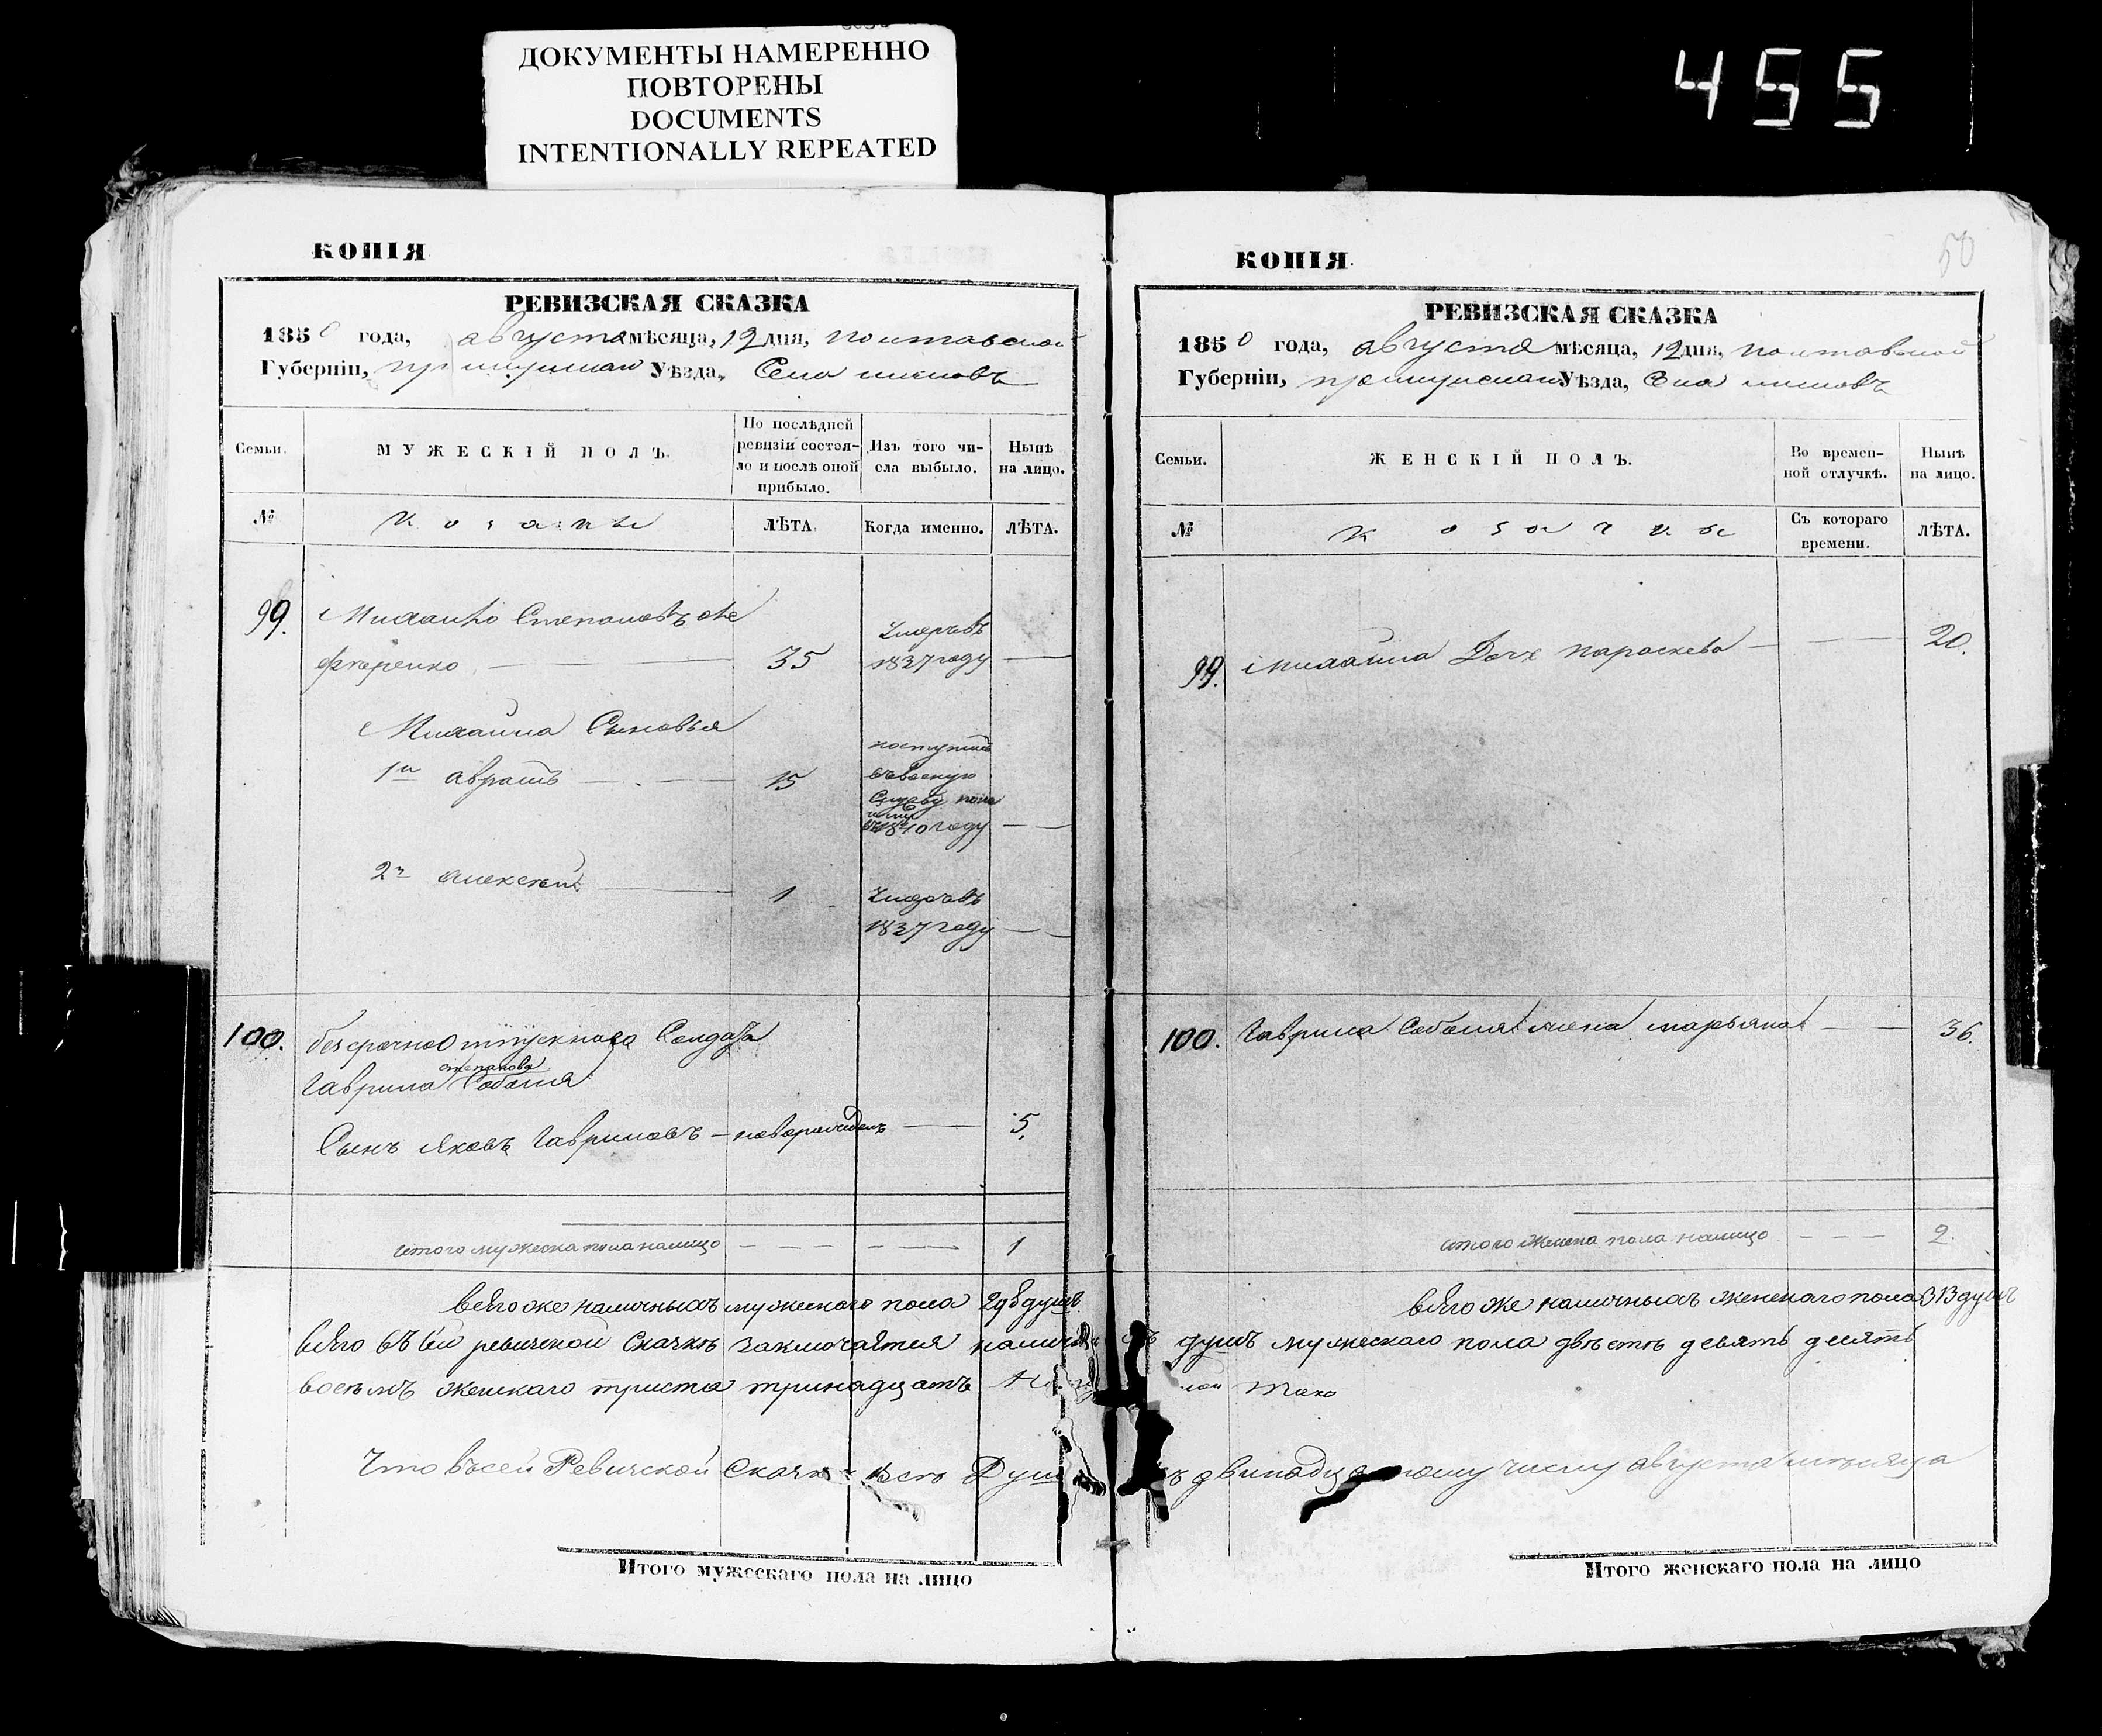 ДОКУМЕНТЫ НАМЕРЕННО
ПОВТОРЕНЫ
DOCUMENTS
INTENTIONALLY REPEATED
455
КОПІЯ
РЕВИЗСКАЯ СКАЗКА
1850 года, августа мѣсяца, 12 дня, полтавской
Губерніи, Уѣзда, Села
Семьи.
МУЖЕСКІЙ ПОЛЪ.
По послѣдней
ревизіи состоя-
ло и послѣ оной
прибыло.
Изъ того чи-
сла выбыло.
Нынѣ
на лицо.
№
Козаки
ЛѢТА.
Когда именно.
ЛѢТА.
99.
Михайло Степановъ
35
Умеръ въ
1837 году
Михайла Сыновья
1й
15
поступилъ
въ военую
Службу
1840 году
2й Алексей
1
Умеръ въ
1837 году
100.
безсрочно Отпускнаго Солдата
степанова
Гаврила Соболя
Сынъ Яковъ Гавриловъ – новорожденъ
5.
итого мужеска пола налицо
1
всего же наличныхъ мужескаго пола 298 душъ
всего въ сей ревизской Сказкѣ заключается
восемъ женскаго триста тринадцать
Что въ сей Ревизской Сказке всѣ
Итого мужескаго пола на лицо
50
КОПІЯ
РЕВИЗСКАЯ СКАЗКА
1850 года, августа мѣсяца, 12 дня, полтавской
Губерніи, Уѣзда, Села
Семьи.
ЖЕНСКІЙ ПОЛЪ.
Во времен-
ной отлучкѣ.
Нынѣ
на лицо.
№
Козачки
Съ котораго
времени.
ЛѢТА.
99.
Михайла Дочь параскева
20.
100.
Гаврила Соболя жена марьяна
36.
итого женска пола налицо
2.
всего же наличныхъ женскаго пола 313 душъ
душъ мужескаго пола двѣстѣ девять десятъ
тако
двинадцатому числу августа мѣсяца
Итого женскаго пола на лицо